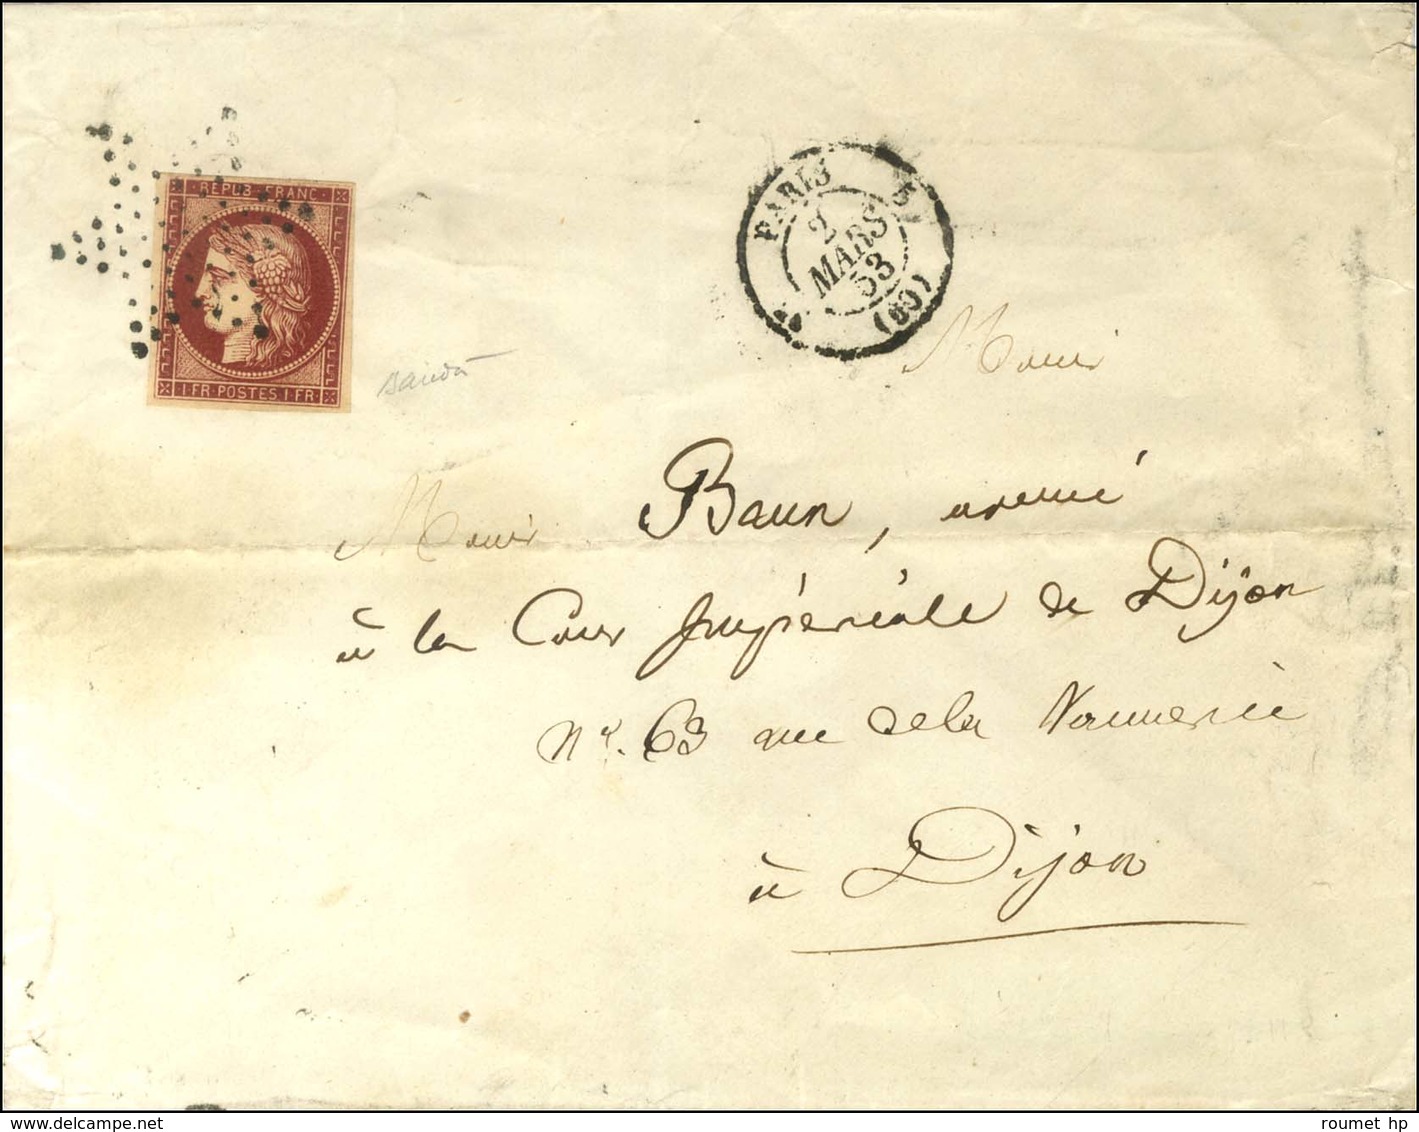 REPUB·FRANC·
1·FR·POSTES·1·FR·
PARIS
2
MARS
53
(60)
Monsr
Monsr Baun, avoué
à la Cour Impériale de Dijon
No. 63 rue de la Vannerie
à Dijon
www.delcampe.net
roumet hp